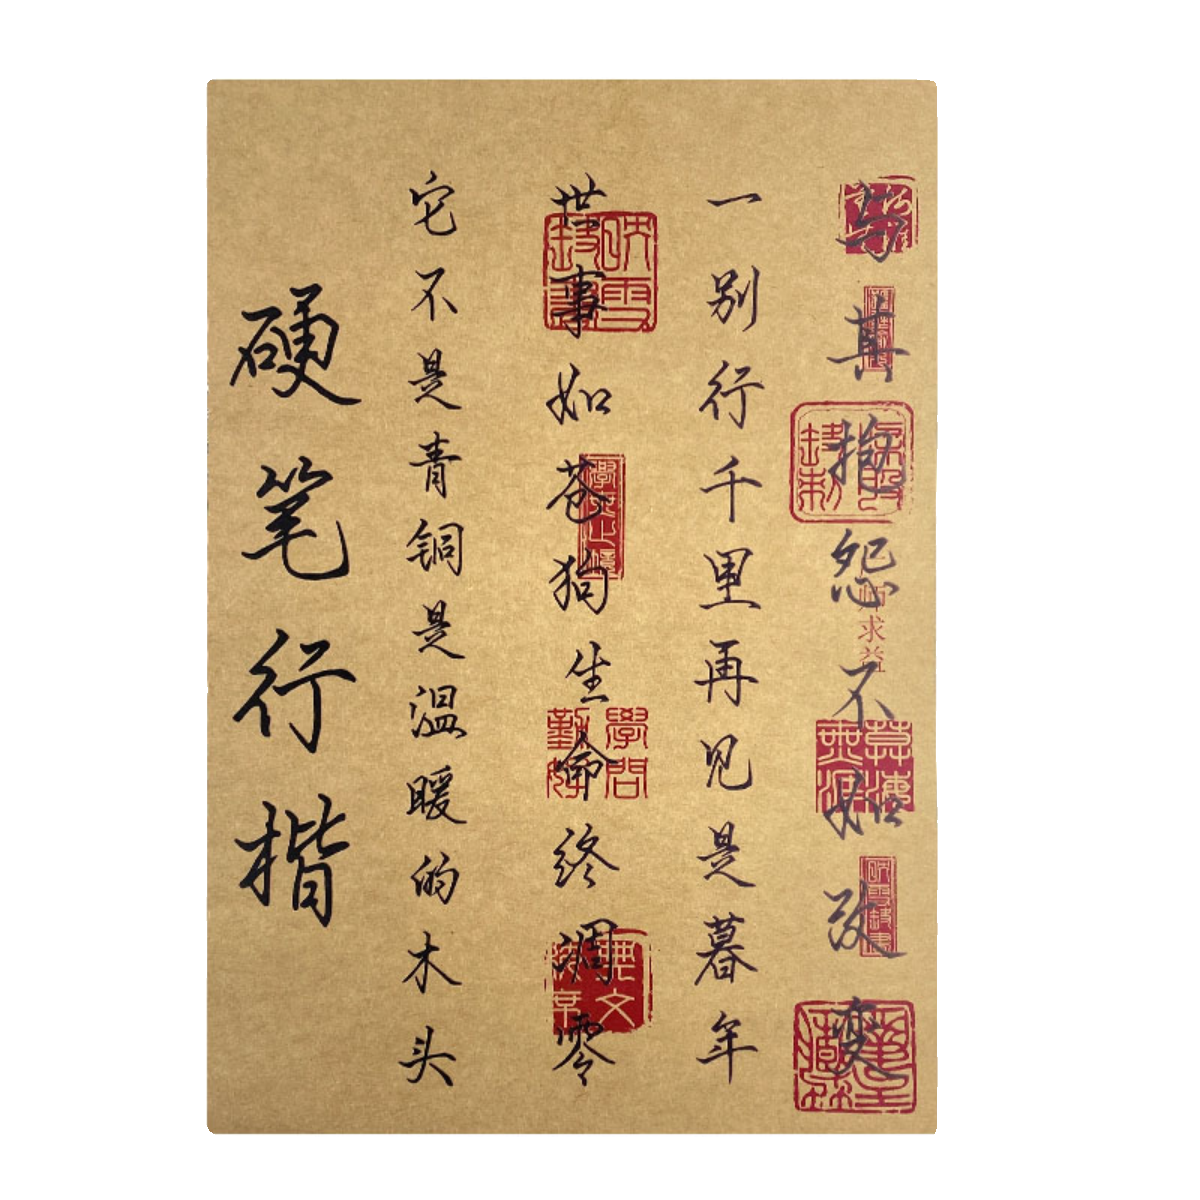 与其抱怨不如改变
一别行千里再见是暮年
世事如苍狗生命终凋零
它不是青铜是温暖的木头
硬笔行楷
求益
學問
無文